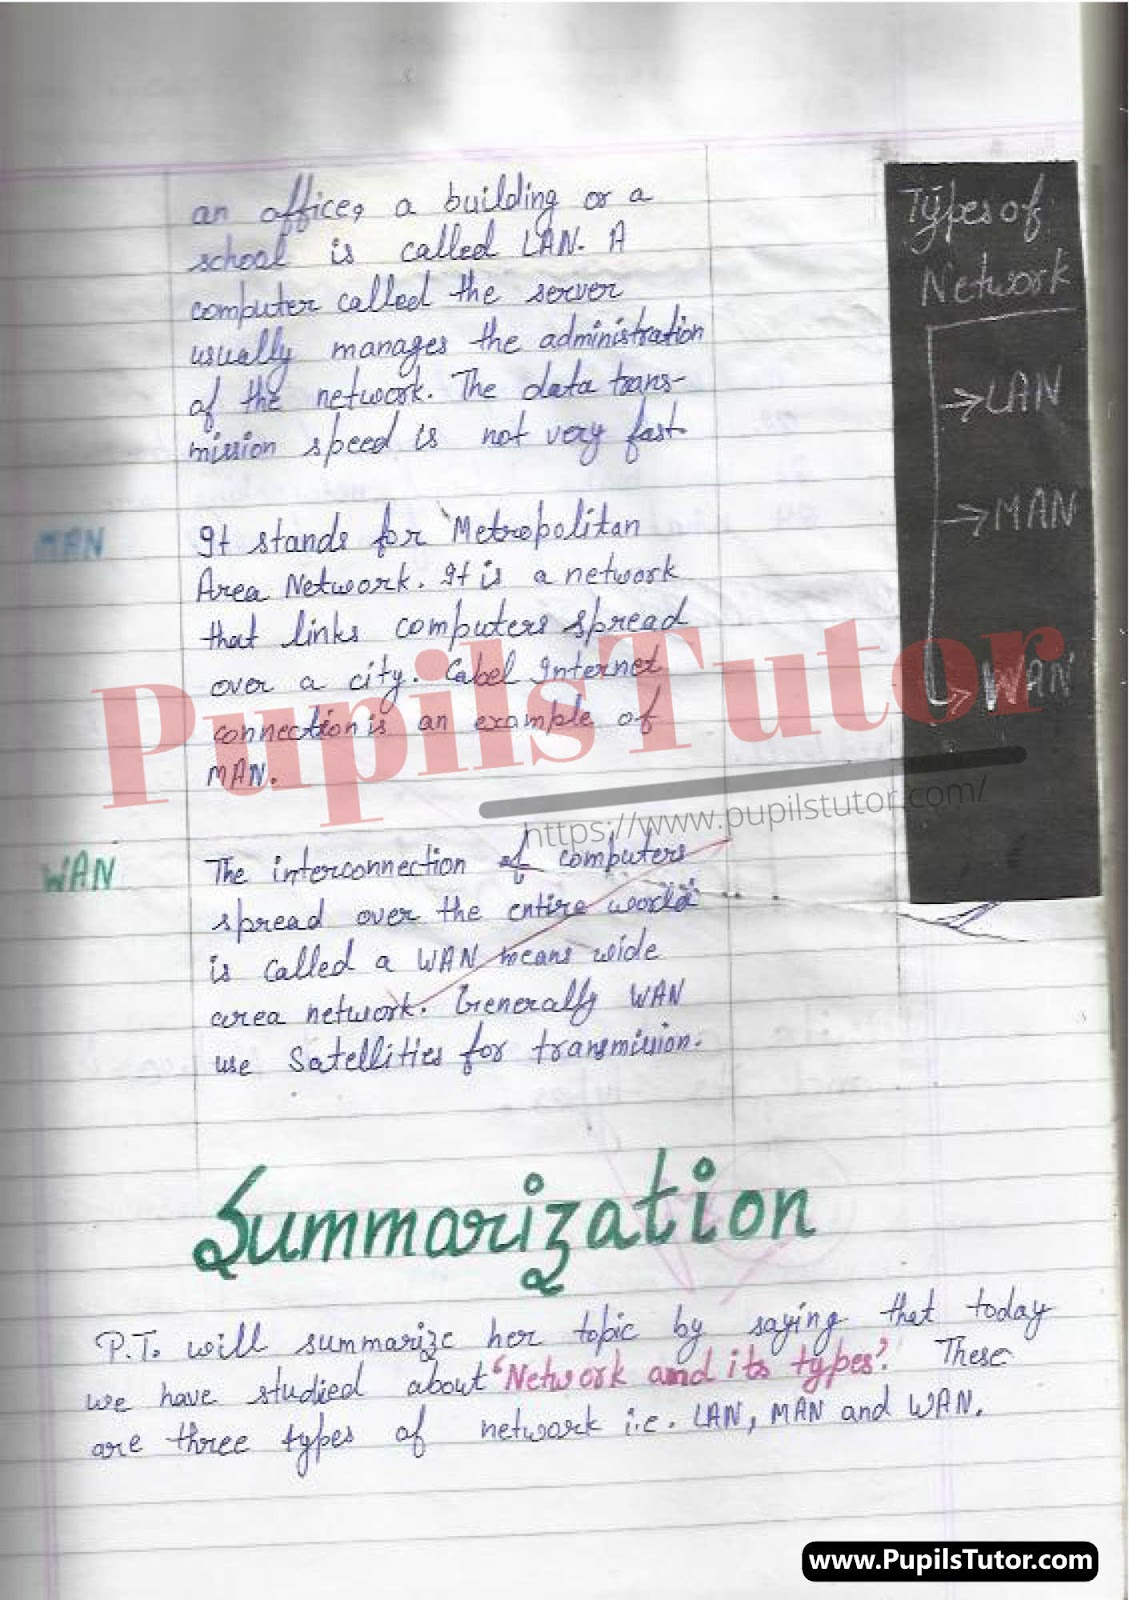 an office, a building or a
school is called LAN. A
computer called the server
usually manages the administration
of the network. The data trans-
mission speed is not very fast.
MAN
It stands for Metropolitan
Area Network. It is a network
that links computers spread
over a city. Cabel Internet
connection is an example of
MAN.
WAN
The interconnection of computers
spread over the entire world
is called a WAN means wide
area network. Generally WAN
use Satellities for transmission.
Types of
Network
→LAN
→MAN
→WAN
PupilsTutor
https://www.pupilstutor.com/
Summarization
P.T. will summarize her topic by saying that today
we have studied about 'Network and its types'. These
are three types of network i.e. LAN, MAN and WAN.
www.PupilsTutor.com